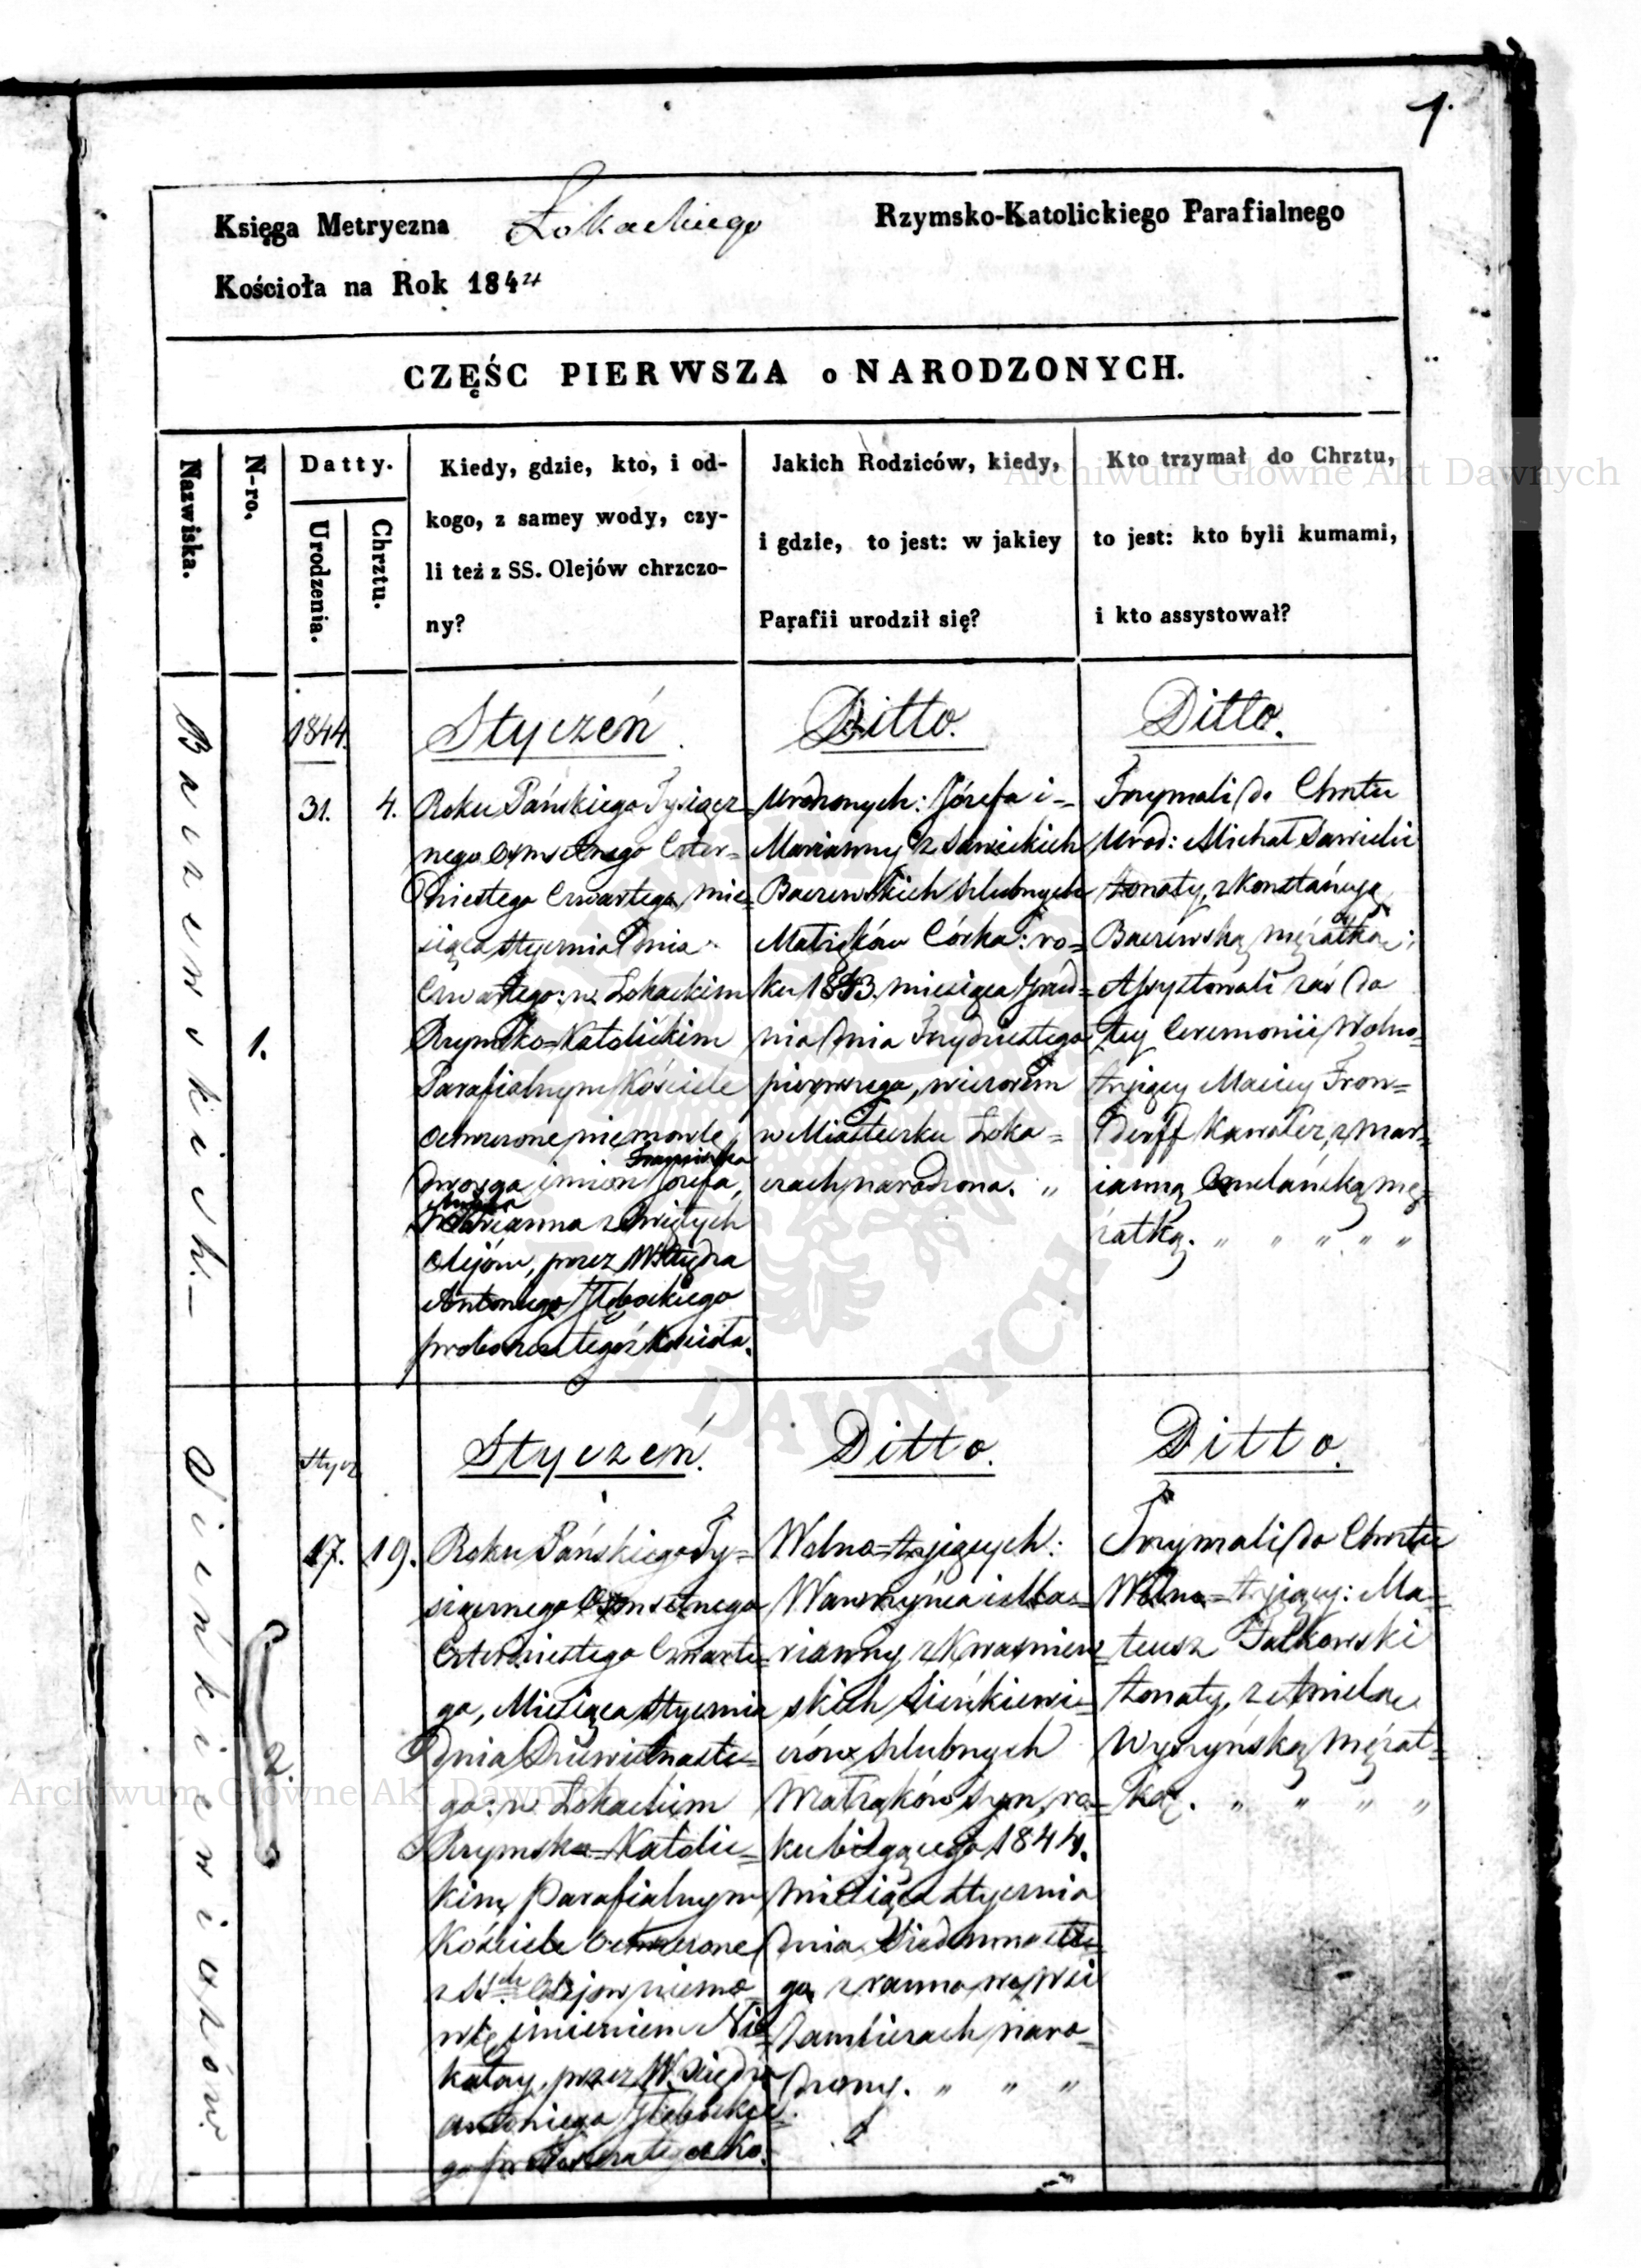 1.
Księga Metryczna Łokackiego Rzymsko-Katolickiego Parafialnego
Kościoła na Rok 1844
CZĘŚC PIERWSZA o NARODZONYCH.
Nazwiska.
N-ro.
Datty.
Urodzenia.
Chrztu.
Kiedy, gdzie, kto, i od-
kogo, z samey wody, czy-
li też z SS. Olejów chrzczo-
ny?
Jakich Rodziców, kiedy,
i gdzie, to jest: w jakiey
Parafii urodził się?
Kto trzymał do Chrztu,
to jest: kto byli kumami,
i kto assystował?
Baczewskich.
1.
1844.
31.
4.
Styczeń.
Roku Pańskiego Tysiącz=
nego Osmsetnego Czter=
dziestego Czwartego, Mie=
siąca Stycznia Dnia
Czwartego: w Łokackim
Rzymsko=Katolickim
Parafialnym Kościele
Ochrzczone niemowle,
dwoyga imion Józefa, Franciszka
Marianna z Świętych
Olejów, przez W. Xiędza
Antoniego Głębockiego
proboszcza tegoż Kościoła.
Ditto.
Urodzonych: Józefa i=
Marianny z Sawickich
Baczewskich Szlubnych
Małżąków Córka: ro=
ku 1843. miesiąca Grud=
nia dnia Trzydziestego
pierwszego, wieczorem
w Miasteczku Łoka=
czach narodzona. "
Ditto.
Trzymali do Chrztu
Urod: Michał Sawicki
żonaty, z Konstancyą
Baczewską mężatką:
Assystowali zaś do
tey Ceremonii Wolno=
żyjący Maciey Fron=
derff Kawaler, z Mar=
ianną Omelańską mę=
żatką. " " " " "
Sieńkiewiczów.
2.
Stycz.
17.
19.
Styczeń.
Roku Pańskiego Ty=
siącznego Osmsetnego
Czterdziestego Czwarte=
go, Miesiąca Stycznia
Dnia Dziewietnaste=
go: w Łokackim
Rzymsko=Katolic=
kim Parafialnym
Kościele Ochrzczone
z SSch Olejow niemo=
wle, imieniem Ni=
kołay, przez W. Xiędza
Antoniego Głębockie=
go proboszcza tegoż Ko.
Ditto.
Wolno=żyjących:
Wawrzyńca i Ma=
rianny z Kwasniew=
skich Sieńkiewi=
czów Szlubnych
Małżąków Syn, ro=
ku bieżącego 1844.
Miesiąca Stycznia
dnia Siedmnaste=
go z rana we Wsi
Zamliczach naro=
dzony. " " "
Ditto.
Trzymali do Chrztu
Wolno=żyjący: Ma=
teusz Falkowski
żonaty, z Anielą
Wyszyńską Mężat=
ką. " " " "
Archiwum Główne Akt Dawnych
Archiwum Główne Akt Dawnych
DAWNYCH